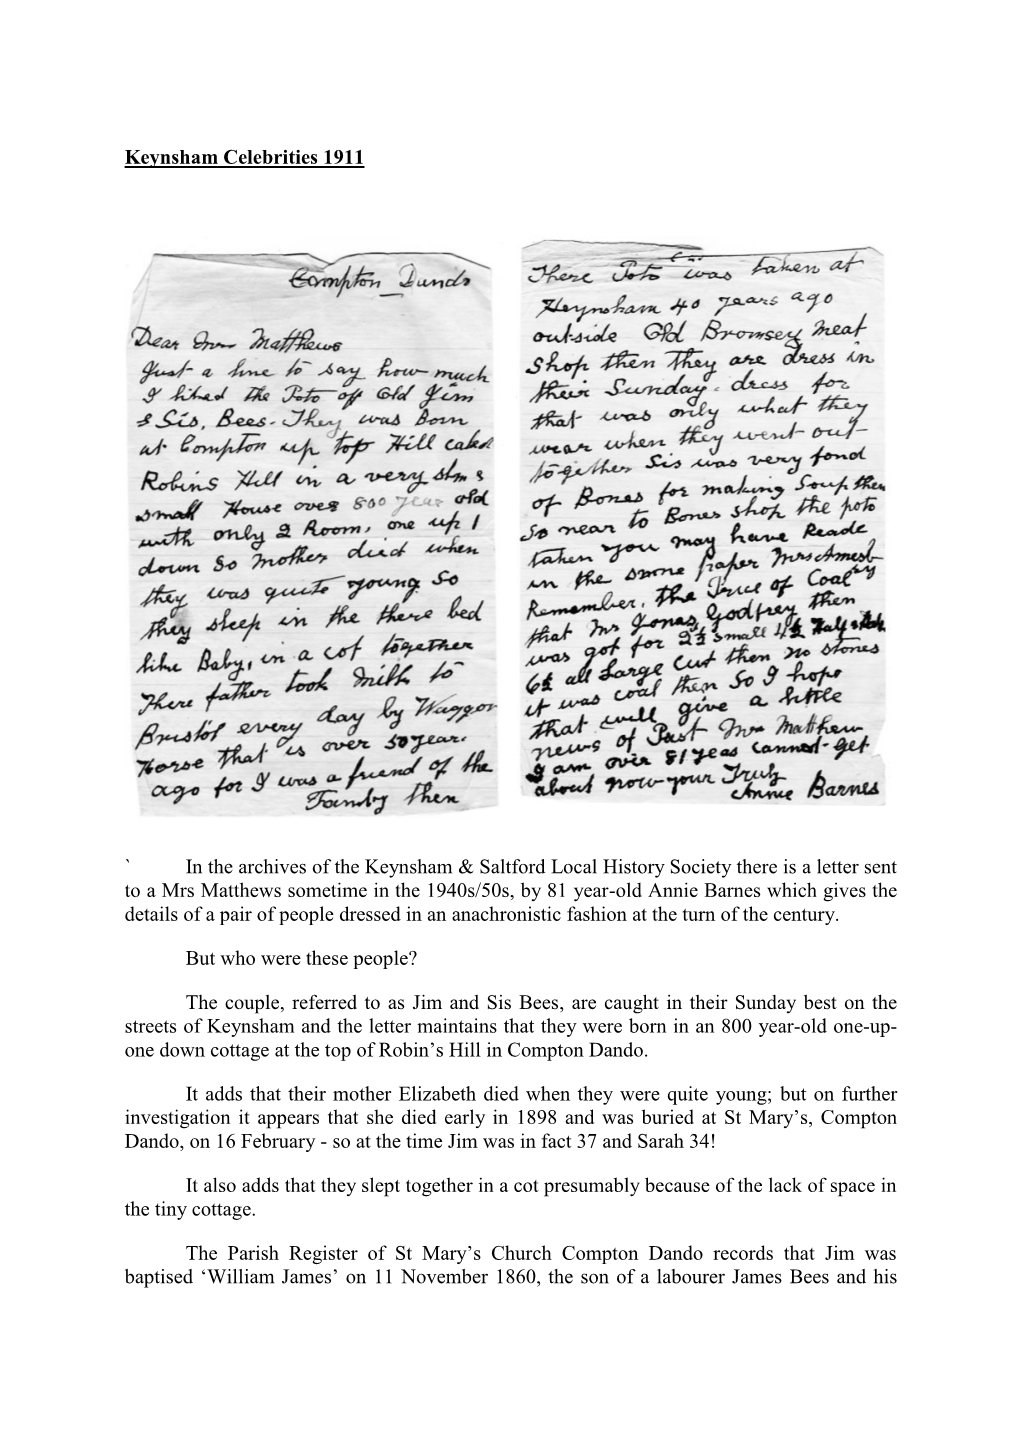 Keynsham Celebrities 1911
Compton Dando
Dear Mrs Matthews
Just a line to say how much
I liked the Poto off Old Jim
& Sis, Bees. They was Born
at Compton up top Hill caled
Robins Hill in a very
small House over 800 year old
with only 2 Room, one up 1
down So Mother died when
they was quite young So
they sleep in the there bed
like Baby, in a cot together
There father took Milk to
Bristol every day by Waggon
Horse that is over 50 year.
ago for I was a friend of the
Family then
There Poto was taken at
Keynsham 40 years ago
outside Old Bromsey meat
Shop then they are dress in
their Sunday-dress for
that was only what they
wear when they went out-
together Sis was very fond
of Bones for making Soup then
So near to Bones shop the poto
taken you may have Reade
in the paper Mrs
Remember, the Price of Coal
that Mr Jonas Godfrey then
was got for 2½ small 4½ Half
6½ all Large Cut then no stones
it was coal then So I hope
that will give a little
news of Past Mrs Matthew
I am over 81 yeas cannot-get
about now your Truly
Annie Barnes
` In the archives of the Keynsham & Saltford Local History Society there is a letter sent
to a Mrs Matthews sometime in the 1940s/50s, by 81 year-old Annie Barnes which gives the
details of a pair of people dressed in an anachronistic fashion at the turn of the century.
But who were these people?
The couple, referred to as Jim and Sis Bees, are caught in their Sunday best on the
streets of Keynsham and the letter maintains that they were born in an 800 year-old one-up-
one down cottage at the top of Robin’s Hill in Compton Dando.
It adds that their mother Elizabeth died when they were quite young; but on further
investigation it appears that she died early in 1898 and was buried at St Mary’s, Compton
Dando, on 16 February - so at the time Jim was in fact 37 and Sarah 34!
It also adds that they slept together in a cot presumably because of the lack of space in
the tiny cottage.
The Parish Register of St Mary’s Church Compton Dando records that Jim was
baptised ‘William James’ on 11 November 1860, the son of a labourer James Bees and his